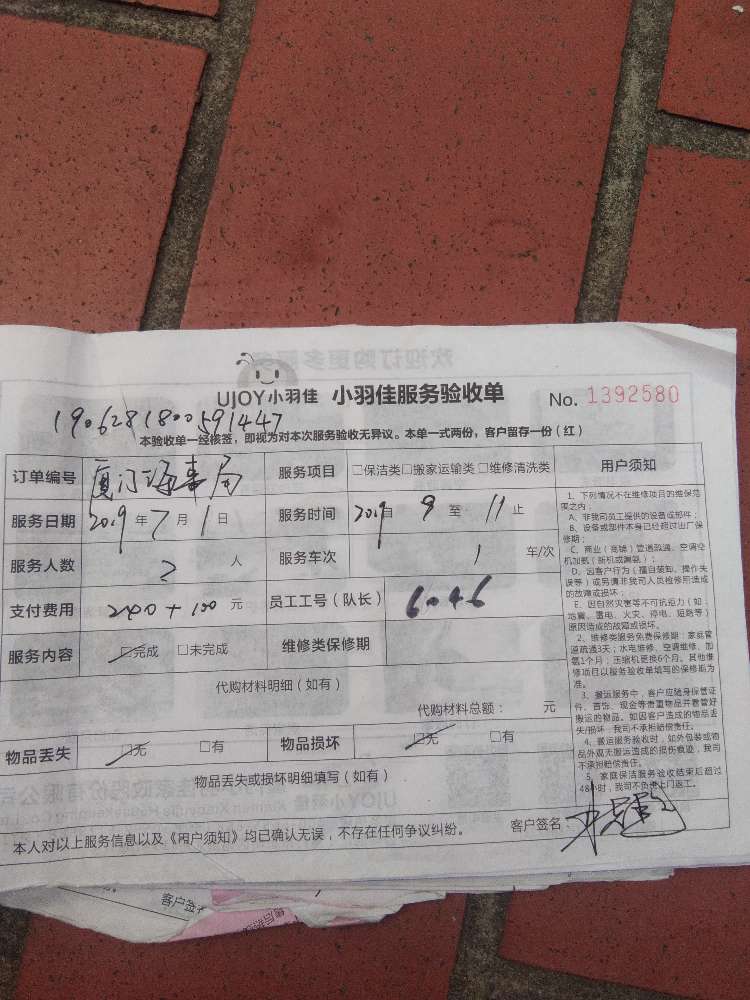 欢迎订购更多
UJOY小羽佳 小羽佳服务验收单 No. 1392580
190628180059​1447
本验收单一经核签，即视为对本次服务验收无异议。本单一式两份，客户留存一份（红）
订单编号 厦门海事局 服务项目 □保洁类□搬家运输类□维修清洗类
服务日期 2019年7月1日 服务时间 2019自 9 至 11 止
服务人数 2 人 服务车次 1 车/次
支付费用 240+100 元 员工工号（队长） 6046
服务内容 □完成 □未完成 维修类保修期
代购材料明细（如有）
代购材料总额： 元
物品丢失 □无 □有 物品损坏 □无 □有
物品丢失或损坏明细填写（如有）
本人对以上服务信息以及《用户须知》均已确认无误，不存在任何争议纠纷。 客户签名：
用户须知
1、下列情况不在维修项目的维保范
围之内：
A、非我司员工提供的设备或部件；
B、设备或部件本身已经超过出厂保
修期；
C、商业（商铺）管道疏通、空调空
机加氨（新机或漏氨）；
D、因客户行为（擅自装卸、操作失
误等）或另请非我司人员检修所造成
的故障或损坏；
E、因自然灾害等不可抗拒力（如：
地震、雷电、火灾、停电、短路等）
原因造成的故障或损坏。
2、维修类服务免费保修期：家庭管
道疏通3天；水电维修、空调维修、加
氨1个月；压缩机更换6个月。其他维
修项目以服务验收单填写的保修期为
准。
3、搬运服务中，客户应随身保管证
件、首饰、现金等贵重物品并看管好
搬运的物品。如因客户造成的物品丢
失/损坏，我司不承担赔偿责任。
4、搬运服务验收时，如外包装或物
品外观无搬运造成的损伤痕迹，我司
不承担赔偿责任。
5、家庭保洁服务验收结束后超过
48小时，我司不负责上门返工。
客户签